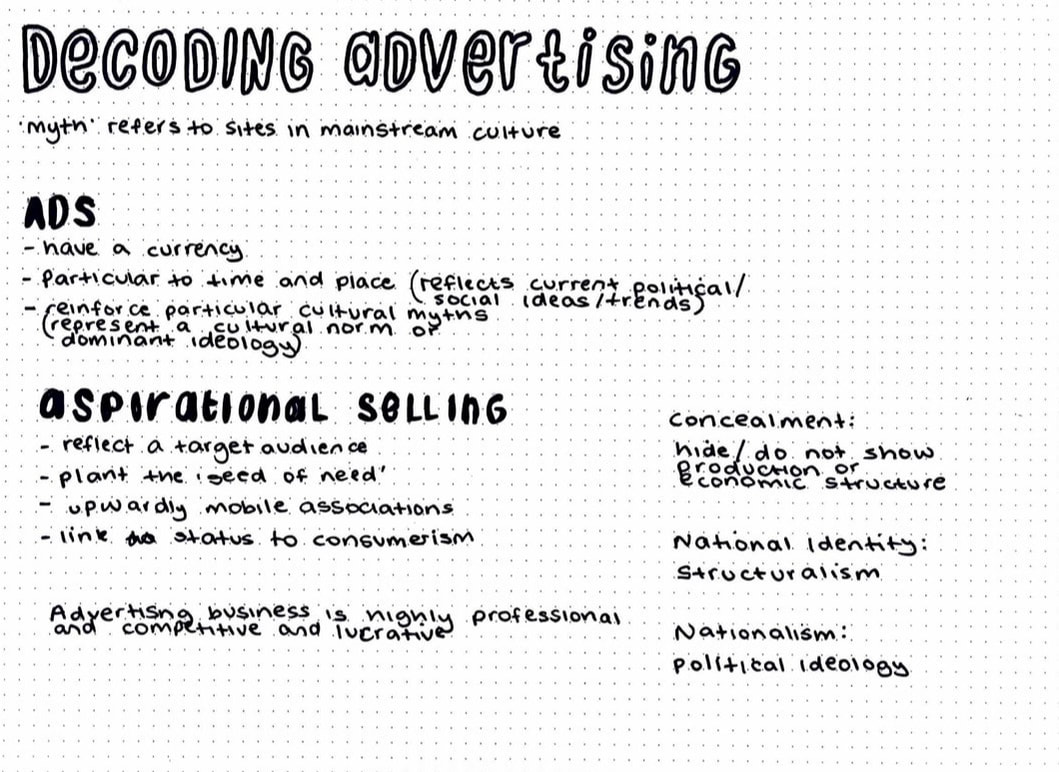 Decoding advertising
'myth' refers to sites in mainstream culture
ADS
- have a currency
- particular to time and place (reflects current political/
social ideas/trends)
- reinforce particular cultural myths
(represent a cultural norm or
dominant ideology)
aspirational selling
- reflect a target audience
- plant the 'seed of need'
- upwardly mobile associations
- link status to consumerism
Advertisng business is highly professional
and competitive and lucrative
concealment:
hide/do not show
production or
economic structure
National Identity:
structuralism
Nationalism:
political ideology